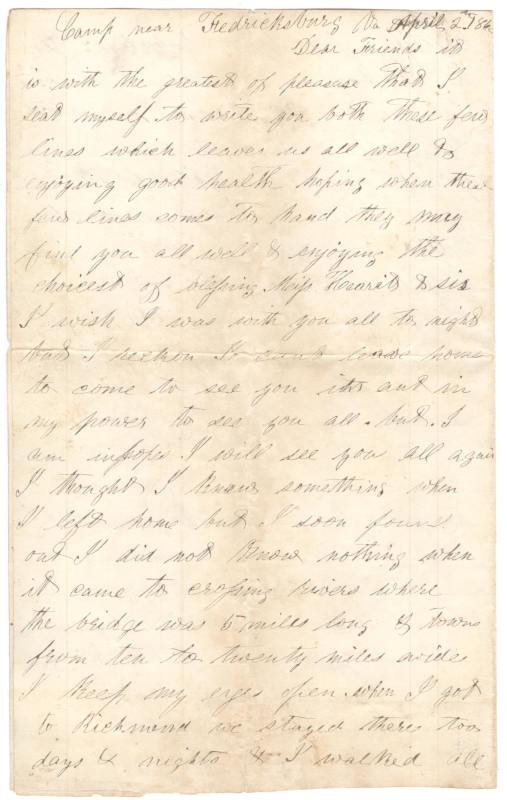 Camp near Fedricksburg Va April 2nd 186
Dear Friends it
is with the greatest of pleasure that I
seat myself to write you both these few
lines which leaves us all well &
enjoying good health hoping when these
few lines comes to hand they may
find you all well & enjoying the
choicest of blessing Miss & sis
I wish I was with you all to night
but I reckon I cant leave home
to come to see you it aut in
my power to see you all. but. I
am in hopes I will see you all again
I thought I knew something when
I left home but I soon found
out I did not know nothing when
it came to crossing rivers where
the bridge was 5 mills long & towns
from ten to twenty miles wide
I keep my eyes open when I got
to Richmond we stayed there too
days & nights & I walked all